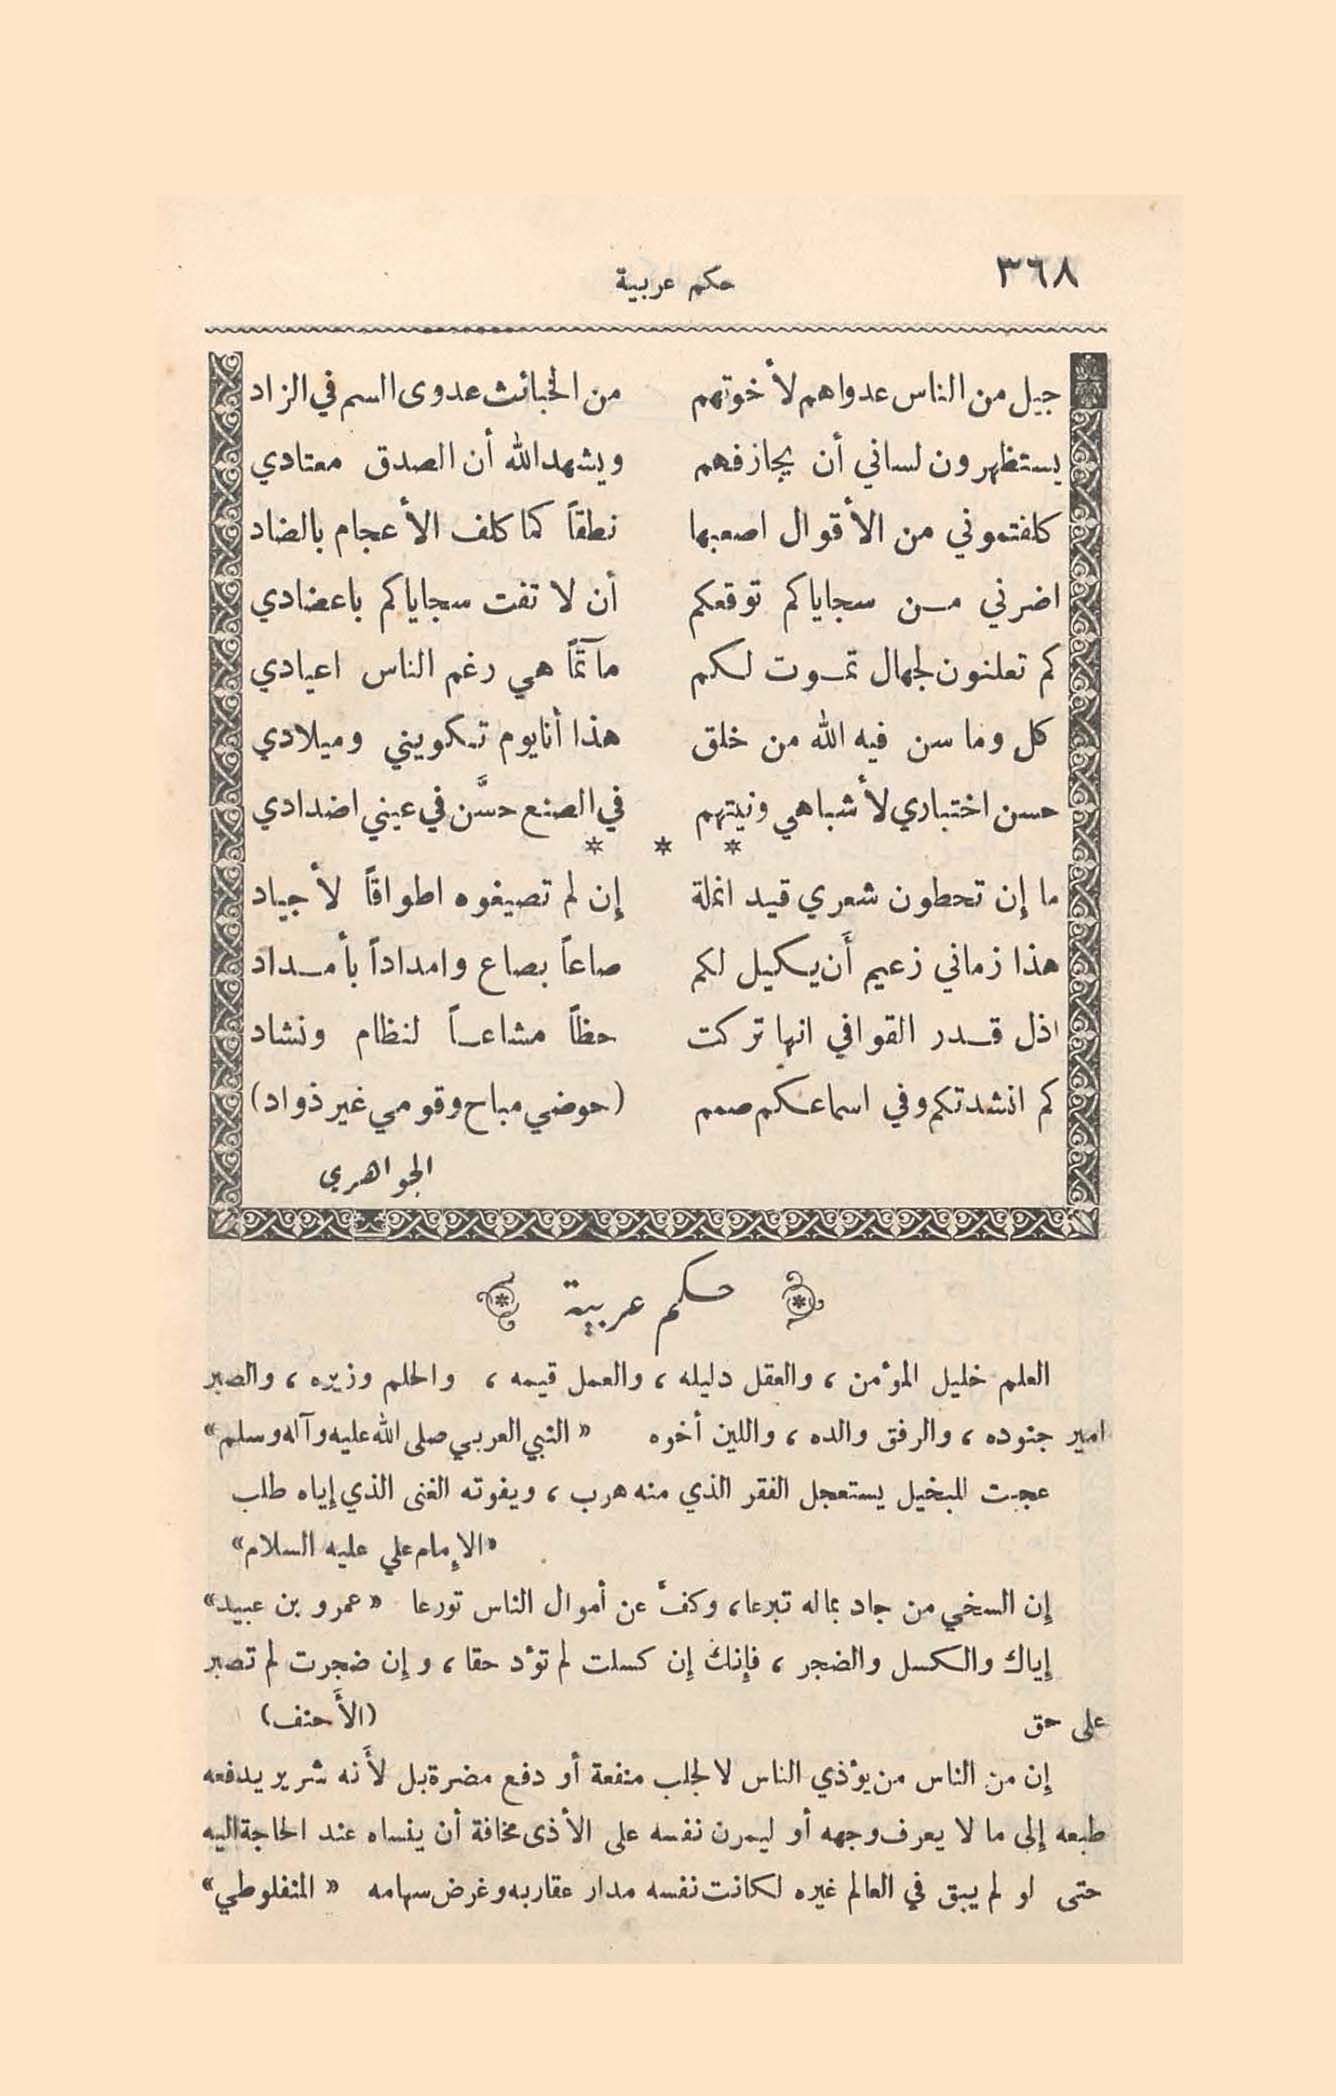 ٣٦٨
حكم عربية
جيل من الناس عدواهم لأخوتهم من الخبائث عدوى السم في الزاد
يستظهرون لساني أن يجازفهم ويشهد الله أن الصدق معتادي
كلفتموني من الأقوال اصعبها نطقاً كما كلف الأعجام بالضاد
اضرني مـن سجاياكم توقعكم أن لا تفت سجاياكم باعضادي
كم تعلنون لجهال تمـوت لكم مآتماً هي رغم الناس اعيادي
كل وما سن فيه الله من خلق هذا أنا يوم تكويني وميلادي
حسن اختباري لأشباهي ونيتهم في الصنع حسَّن في عيني اضدادي
* * *
ما إن تحطون شعري قيد انملة إن لم تصيغوه اطواقاً لأجياد
هذا زماني زعيم أَن يكيل لكم صاعاً بصاع وامداداً بأمـداد
اذل قـدر القوافي انها تركت حظاً مشاعـاً لنظام ونشاد
كم انشدتكم وفي اسماعكم صمم (حوضي مباح وقومي غير ذواد)
الجواهري
حكم عربية
العلم خليل المؤمن ، والعقل دليله ، والعمل قيمه ، والحلم وزيره ، والصبر
امير جنوده ، والرفق والده ، واللين أخوه « النبي العربي صلى الله عليه وآله وسلم »
عجبت للبخيل يستعجل الفقر الذي منه هرب ، ويفوته الغنى الذي إياه طلب
«الإمام علي عليه السلام»
إن السخي من جاد بماله تبرعا، وكفَّ عن أموال الناس تورعا « عمرو بن عبيد»
إياك والكسل والضجر ، فإنك إن كسلت لم تؤد حقا ، وإن ضجرت لم تصبر
على حق (الأَحنف)
إن من الناس من يؤذي الناس لا لجلب منفعة أو دفع مضرة بل لأَنه شرير يدفعه
طبعه إلى ما لا يعرف وجهه أو ليمرن نفسه على الأذى مخافة أن ينساه عند الحاجة اليه
حتى لو لم يبق في العالم غيره لكانت نفسه مدار عقاربه وغرض سهامه « المنفلوطي »